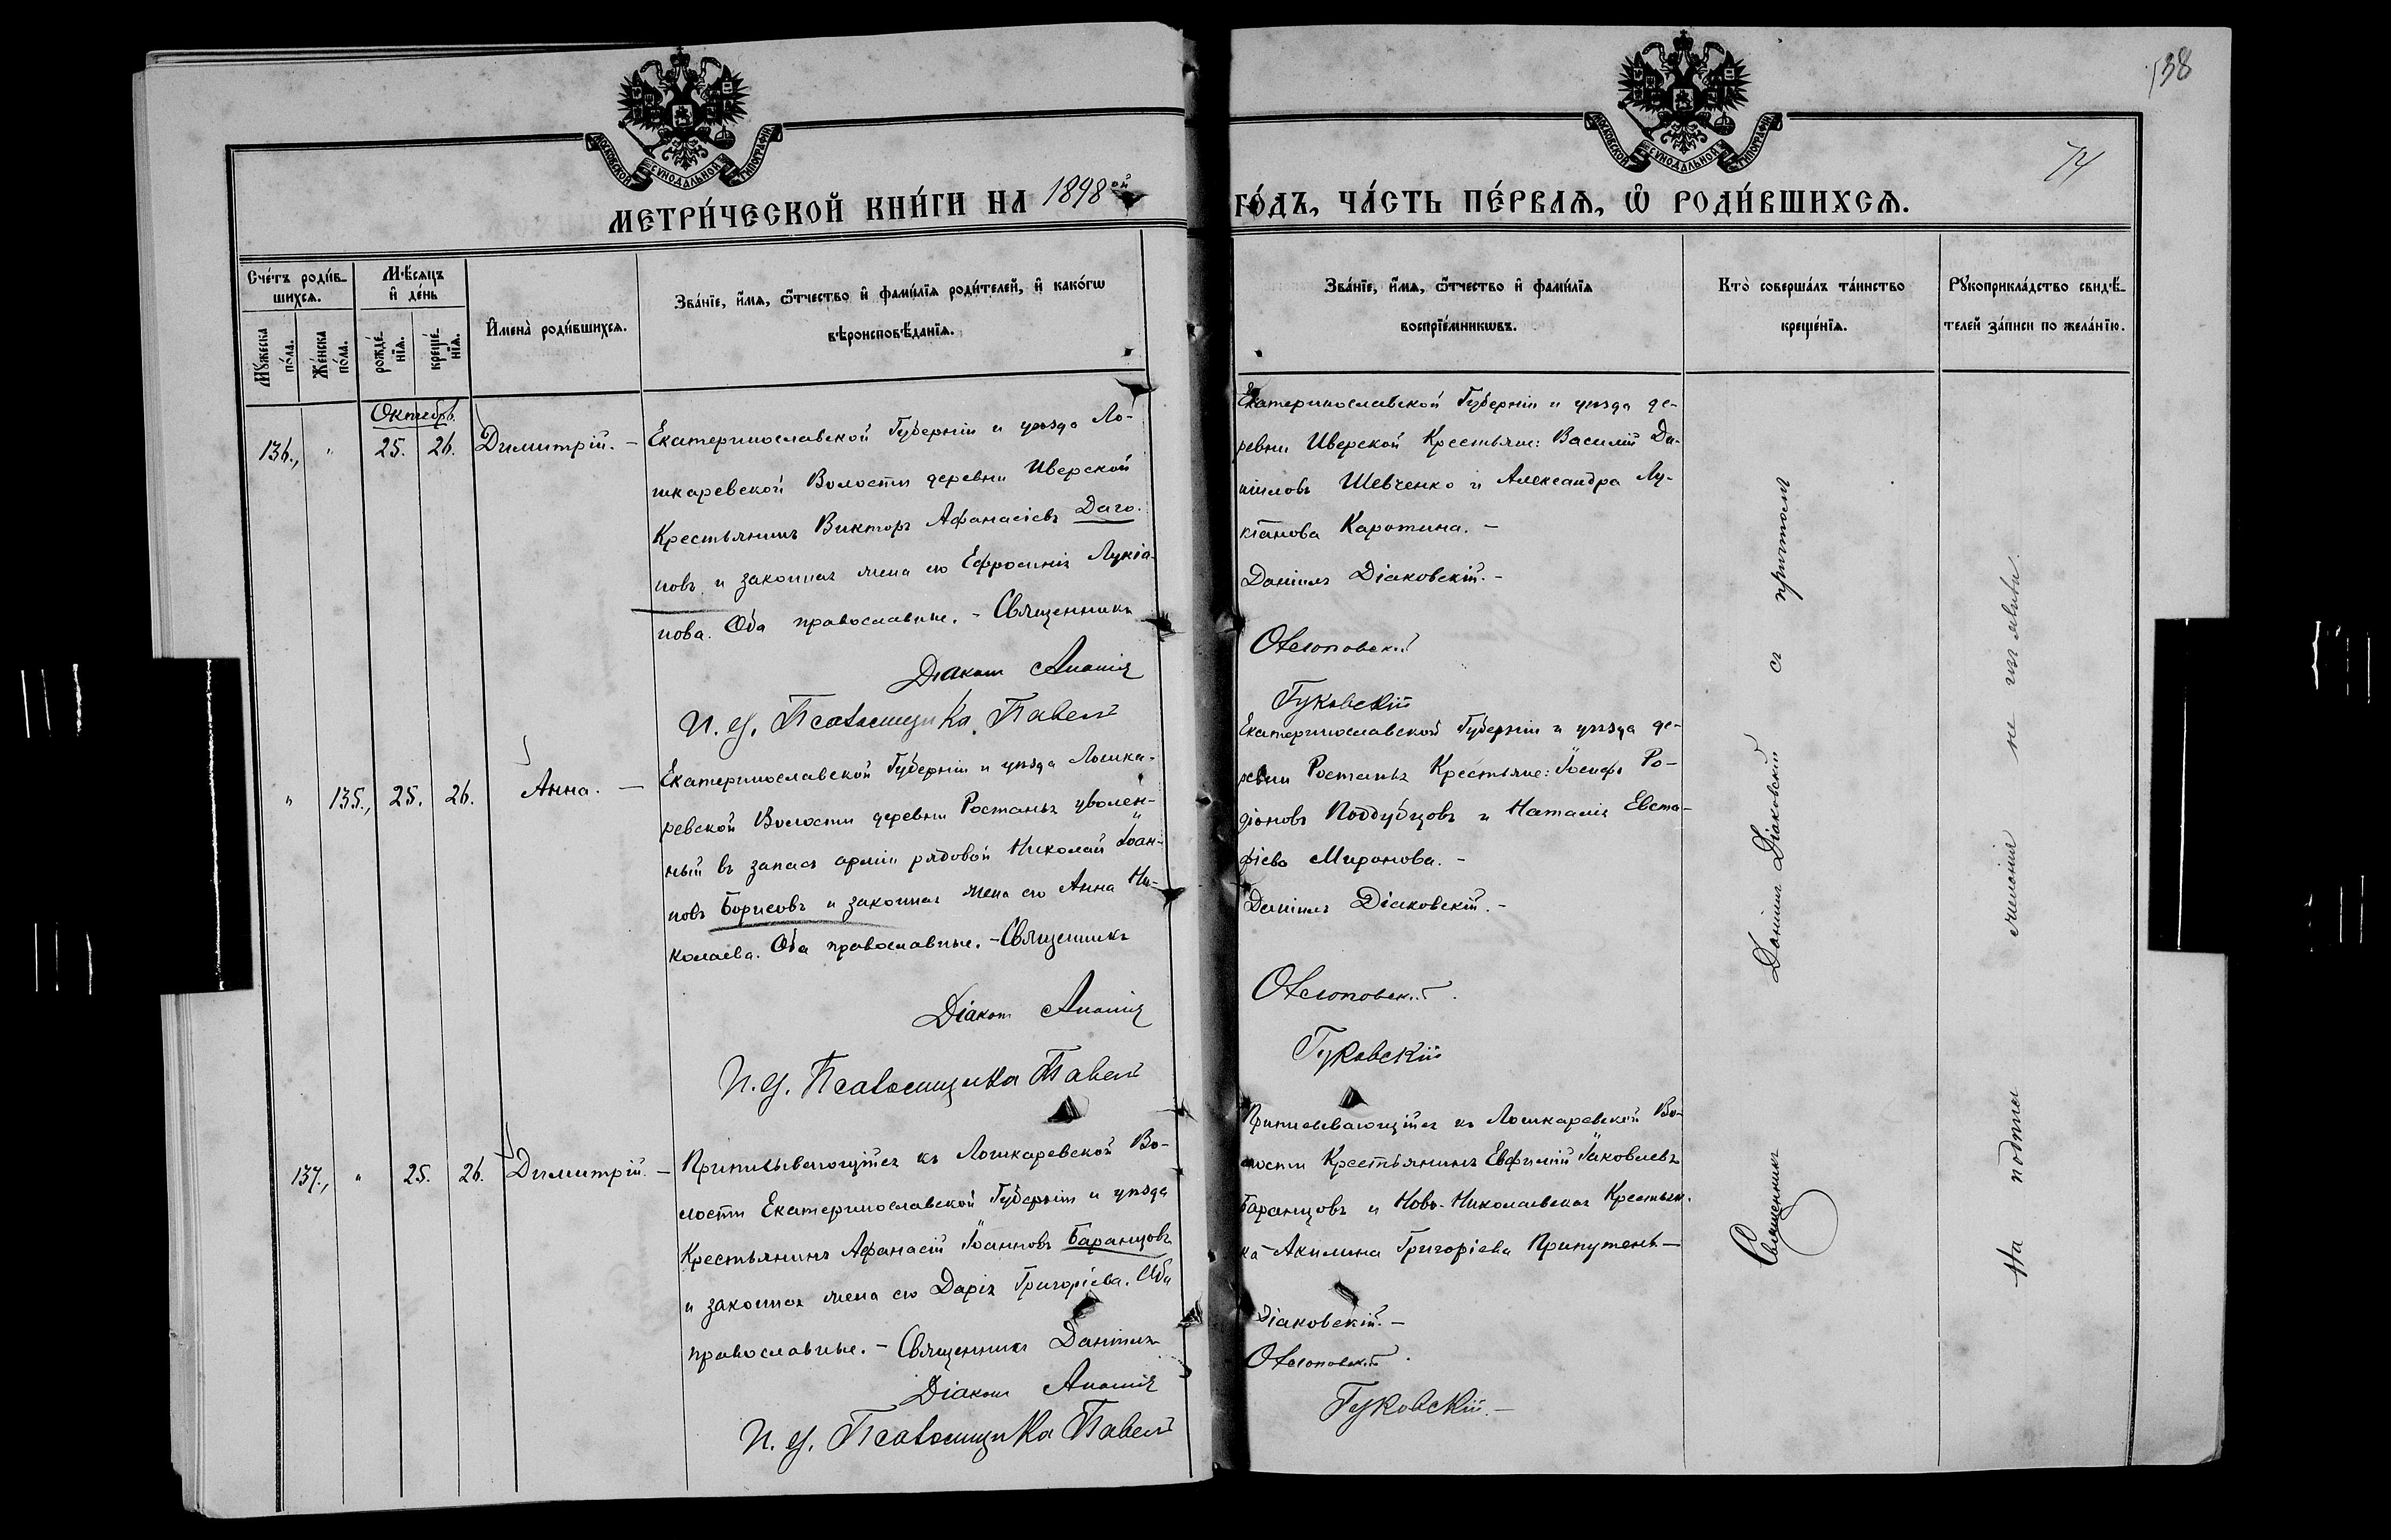 138
74
МОСКОВСКОЙ СУНОДАЛЬНОЙ ТИПОГРАФІИ
МОСКОВСКОЙ СУНОДАЛЬНОЙ ТИПОГРАФІИ
МЕТРИ́ЧЕСКОЙ КНИ́ГИ НА 1898ой
ГО́ДЪ, ЧА́СТЬ ПЕ́РВАѦ, Ѡ РОДИ́ВШИХСѦ.
Сче́тъ роди́в-
шихсѧ.
Мꙋ́жеска
по́ла.
Же́нска
по́ла.
Мѣ́сѧцъ
и҆ де́нь
рожде́-
нїѧ.
креще́-
нїѧ.
И҆мена̀ роди́вшихсѧ.
Зва́нїе, и҆́мѧ, ѻ҆́тчество и҆ фами́лїѧ роди́телей, и҆ како́гѡ
вѣроисповѣ́данїѧ.
Зва́нїе, и҆́мѧ, ѻ҆́тчество и҆ фами́лїѧ
воспрїе́мникѡвъ.
Кто̀ соверша́лъ та́инство
креще́нїѧ.
Рꙋкоприкла́дство свидѣ́-
телей за́писи по жела́нїю.
Октябрь.
136., " 25. 26. Димитрій. —
Екатеринославской Губерніи и уѣзда Ло-
шкаревской Волости деревни Иверской
Крестьянинъ Викторъ Афанасіевъ Даго-
новъ и законная жена его Ефросинія Лукіа-
нова. Оба православные. - Священникъ
Діаконъ Ананія
И. д. Псаломщика Павелъ
Екатеринославской Губерніи и уѣзда де-
ревни Иверской Крестьяне: Василій Да-
ниловъ Шевченко и Александра Лу-
кіанова Каротина. -
Даніилъ Діаковскій. -
Гуковскій
" 135., 25. 26. Анна. —
Екатеринославской Губерніи и уѣзда Лошка-
ревской Волости деревни Ростань уволен-
ный въ запасъ арміи рядовой Николай Іоан-
новъ Борисовъ и законная жена его Анна Ни-
колаева. Оба православные. - Священникъ
Діаконъ Ананія
И. д. Псаломщика Павелъ
Екатеринославской Губерніи и уѣзда де-
ревни Ростань Крестьяне: Іосифъ Ро-
діоновъ Поддубцовъ и Наталія Евста-
фіева Миронова. -
Даніилъ Діаковскій. -
Гуковскій
137., " 25. 26. Димитрій. —
Приписывающійся къ Лошкаревской Во-
лости Екатеринославской Губерніи и уѣзда
Крестьянинъ Афанасій Іоанновъ Баранцовъ
и законная жена его Дарія Григоріева. Оба
православные. - Священникъ Даніилъ
Діаконъ Ананія
И. д. Псаломщика Павелъ
Приписывающійся къ Лошкаревской Во-
лости Крестьянинъ Евфимій Іаковлевъ
Баранцовъ и Ново-Николаевская Крестьян-
ка Акилина Григоріева Припутень —
Діаковскій. —
Гуковскій. —
Священникъ Даніилъ Діаковскій съ причтомъ